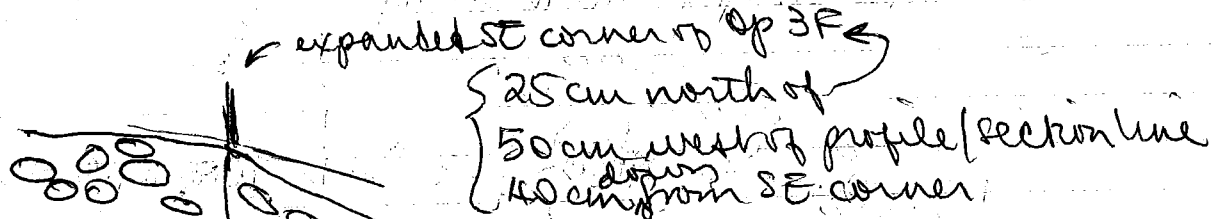 expanded SE corner of Op 3F
25 cm north of
50 cm west of profile/section line
40 cm down from SE corner